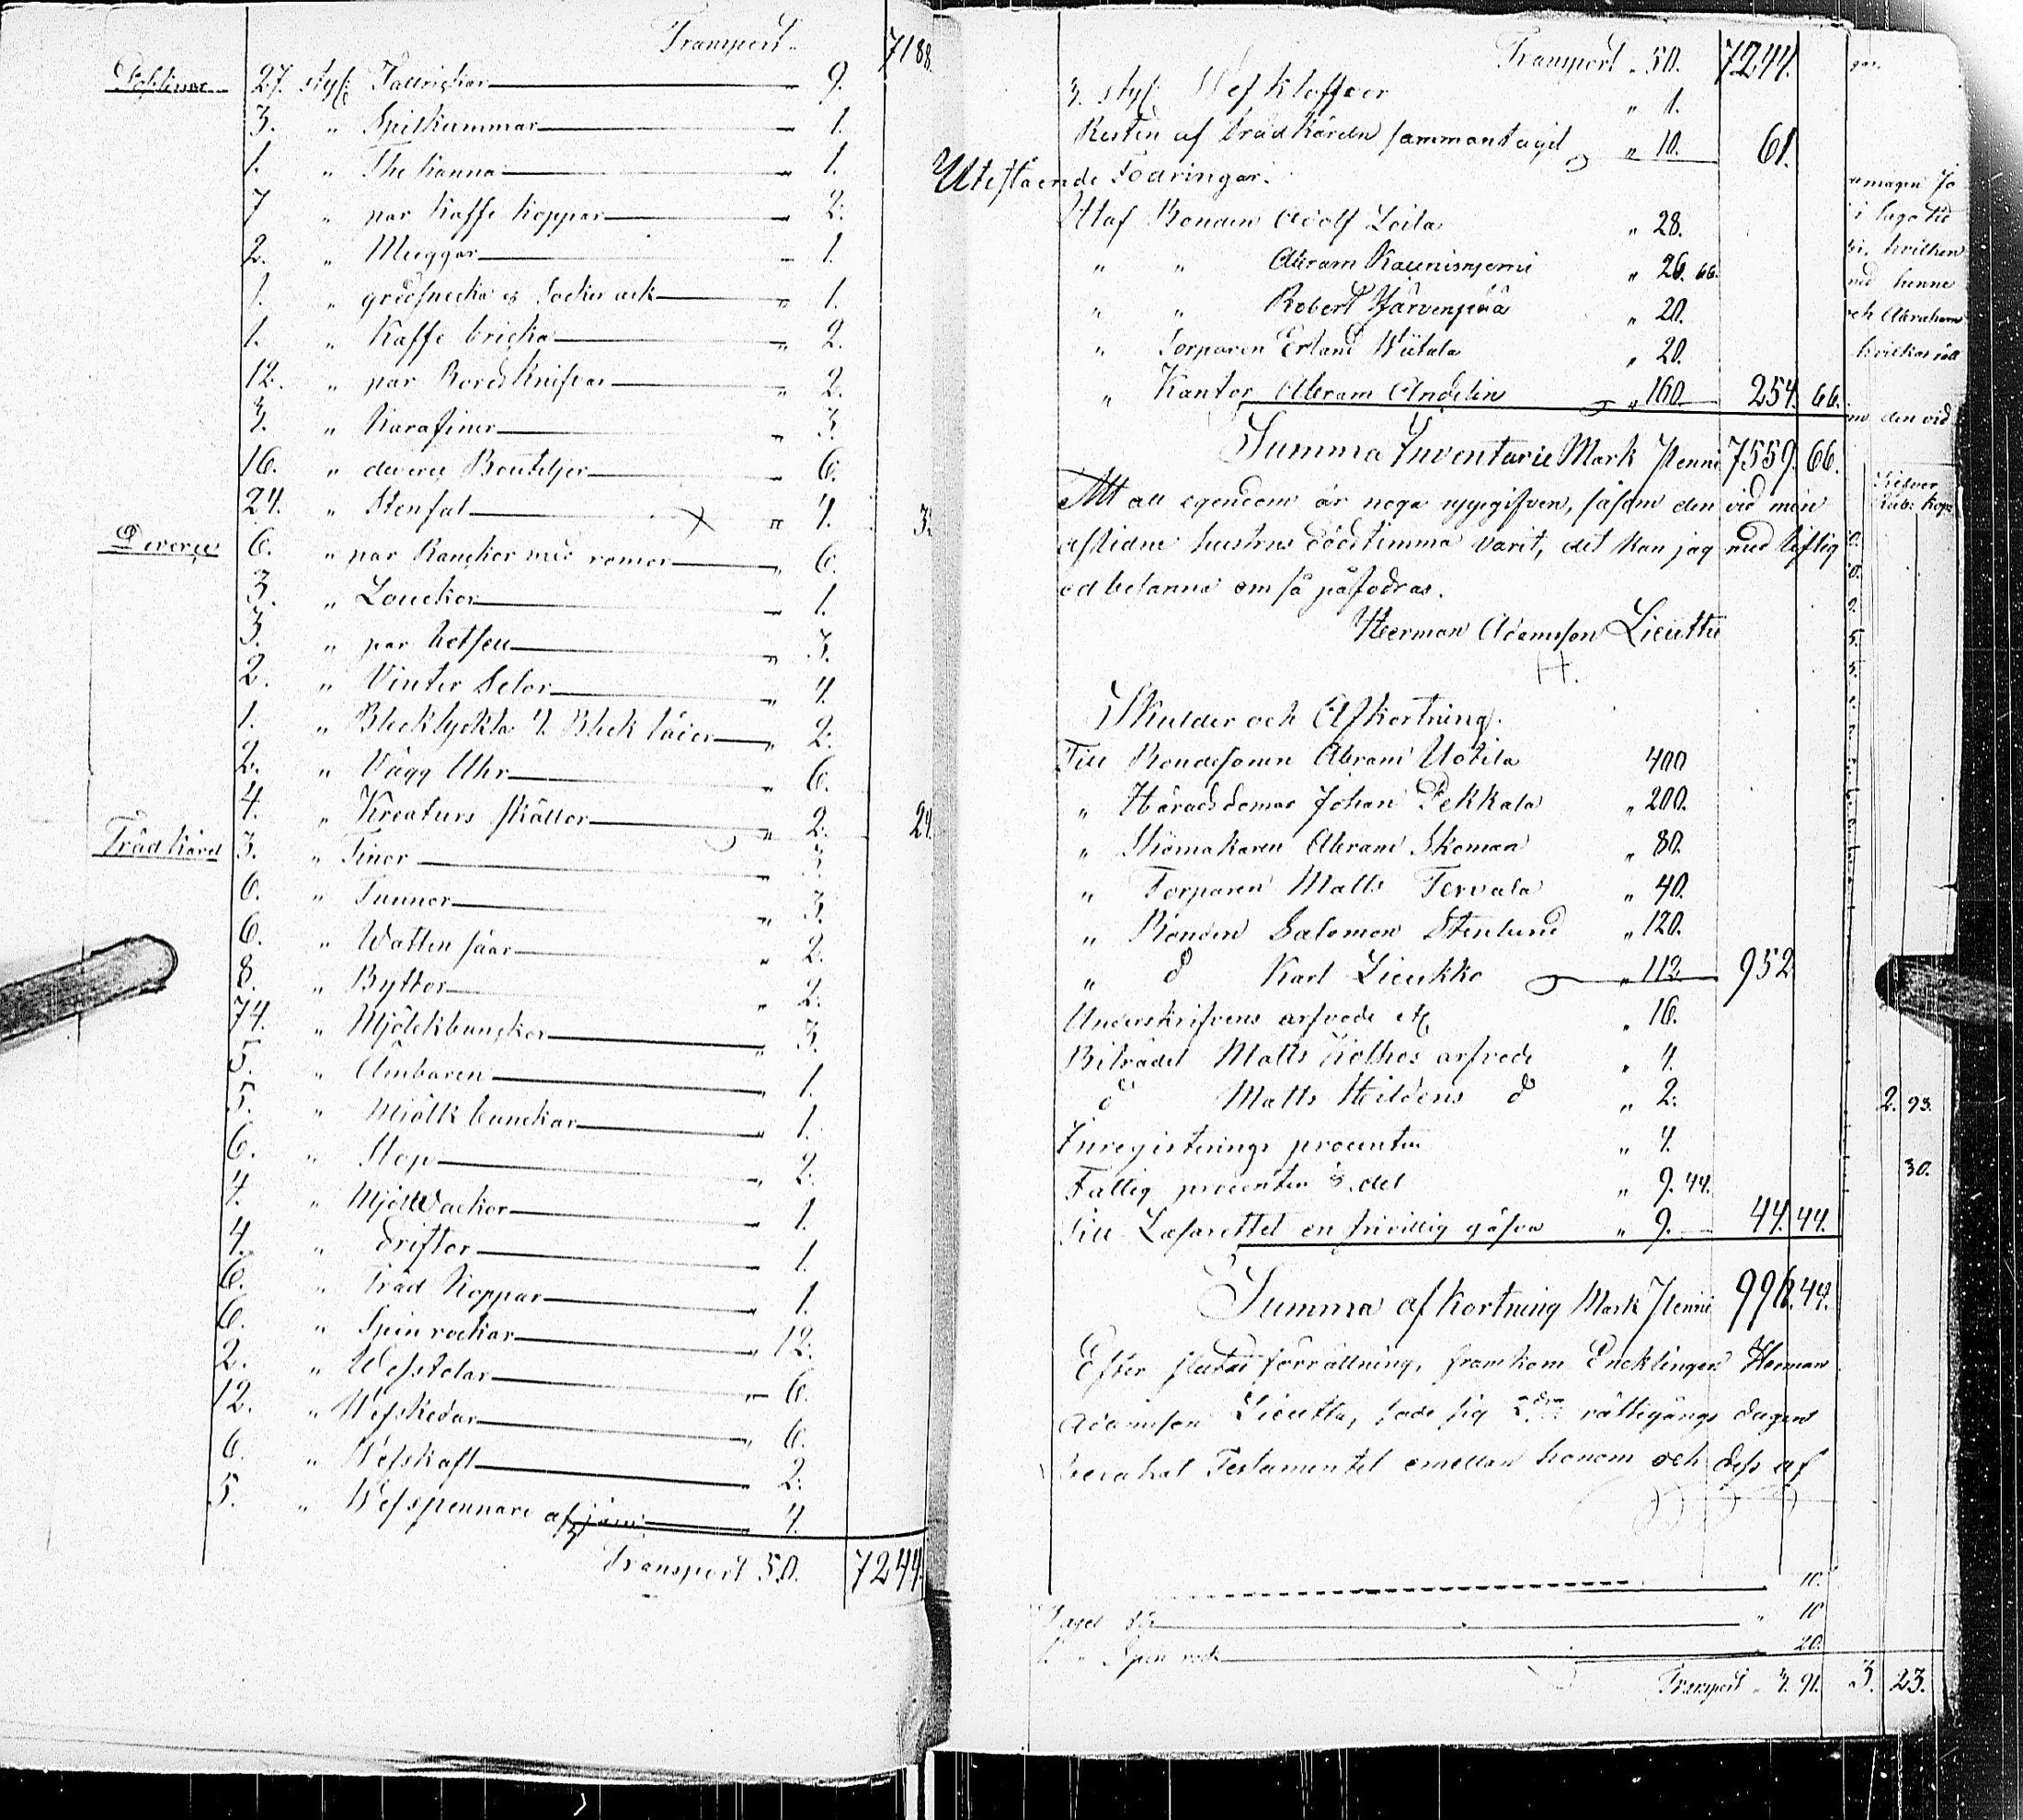 Transport " 7188.
27. styc: Tallrickar 9.
3. " Spilkummar " 1.
1. " The kanna " 1.
7 " par Kaffe koppar " 2.
2. " Muggar " 1.
1. " grädsnecka o Socker ask " 1.
1. " Kaffe bricka " 2.
12. " par Bordsknifvar " 2.
3. " Karafiner " 3.
16. " diverse Bouteljer " 6.
24. " Stenfat " 4. 3
Diverse 6. " par Ranckor med remor " 6.
3. " Lanckor " 1.
3. " par betsel " 3.
2. " Vinter Selor " 4.
1. " Blecklyckta 4. Bleck lådor " 2.
2. " Vägg Uhr " 6.
4. " Kreaturs skällor " 2. 24.
Träd kärel 3. " Tinor " 3.
6. " Tunnor " 3.
6. " Watten såar " 2.
8. " Byttor " 2.
74. " Mjölckbunckor " 3.
5. " Ämbaren " 1.
5. " Mjölk bunckar " 1.
6. " Stop " 2.
4. " Mjöll Vackor " 1.
4. " Driftor " 1.
6. " Träd Koppar " 1.
6. " Spinrockar " 12.
2. " Wefstolar " 6.
12. " Wefskedar " 6.
6. " Wefskaft " 2.
5. " Wefspennare af järn: " 4.
Transport 50. 7244.
Transport " 50. 7244.
3. styc: Wef kloffvor " 1.
Resten af Trädkäreln sammantagit " 10. 61.
Utestående Fodringar.
Utaf Bonden Adolf Loila " 28.
" " Abram Kaunisniemi " 26. 66.
" " Robert Järvenpää " 20.
" Torparen Erland Wiitala " 20.
" Kantor Abram Andelin " 160 254. 66.
Summa Inventarie Mark Penni 7559. 66.
Att all egendom är noga uppgifven, såsom den vid min
aflidne hustrus dödstimma varit, det kan jag med liflig
ed besanna om så påfodras.
Herman Adamsson Lieutte
H.
Skulder och Afkortning.
Till Bondesonen Abram Uotila 400
" Häradsdomar Johan Pekkala " 200.
" Skomakaren Abram Skoman " 80.
" Torparen Matts Tervala " 40.
" Bonden Salomon Stenlund " 120.
" d Karl Lieukko " 112 952
Underskrifvens arfvode etc " 16.
Biträdet Matts Kolhos arfvode " 4.
d Matts Heildens d " 2.
Inregisterings procenten " 4.
Fattig procenten 8. del " 9. 44.
Till Lasarettet en frivillig gåfva " 9. 44. 44.
Summa afkortning Mark Penni 996. 44.
Efter slutad förrättning, framkom Encklingen Herman
Adamson Lieutta, sade sig 2dra rättegångs dagen
bevakat Testamentet emellan honom och dess af
10.
10
1. " Spin rock 20.
Transport " 3. 91. 3. 23.
i laga tid
hvilken
henne
och Abraham
den vid
2. 93.
30.